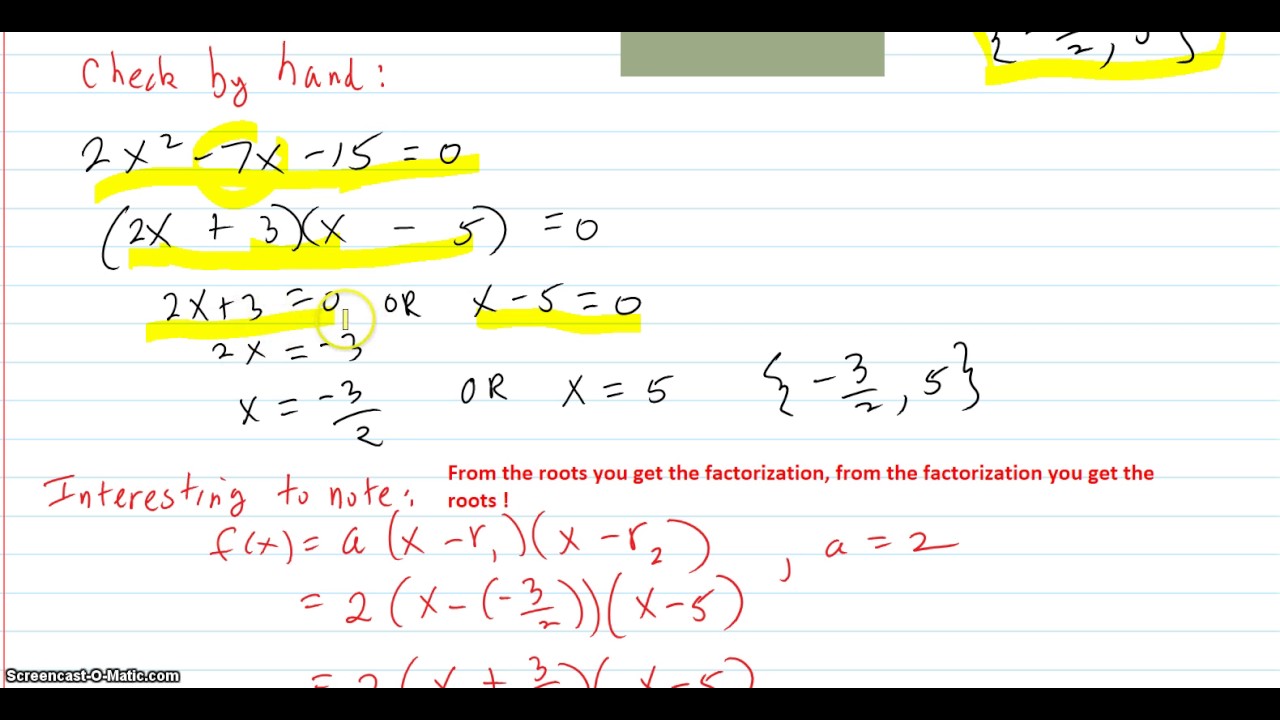 {-3/2, 5}
Check by hand:
2x² - 7x - 15 = 0
(2x + 3)(x - 5) = 0
2x + 3 = 0 OR x - 5 = 0
2x = -3
x = -3/2 OR x = 5 {-3/2, 5}
Interesting to note:
From the roots you get the factorization, from the factorization you get the
roots !
f(x) = a(x - r₁)(x - r₂), a = 2
= 2(x - (-3/2))(x - 5)
= 2(x + 3/2)(x - 5)
Screencast-O-Matic.com